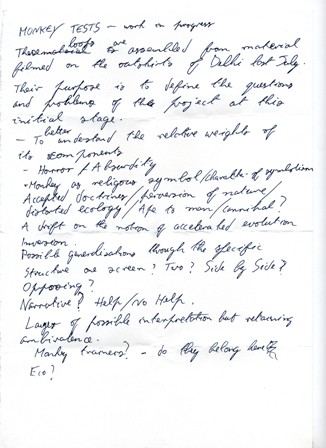 MONKEY TESTS - work in progress
These loops are assembled from material
filmed on the outskirts of Delhi last July.
Their purpose is to define the questions
and problems of this project at this
initial stage.
- To better understand the relative weights of
its components
- Horror / Absurdity
- Monkey as religious symbol/character of symbolism
Accepted doctrines/perversion of nature/
distorted ecology/Ape to man/cannibal?
A drift on the notion of accelerated evolution
Inversion.
Possible generalisations through the specific
Structure one screen? Two? Side by Side?
Opposing?
Narrative? Help/No Help.
Layers of possible interpretation but retaining
ambivalence.
Monkey trainers? - do they belong here
Eco?